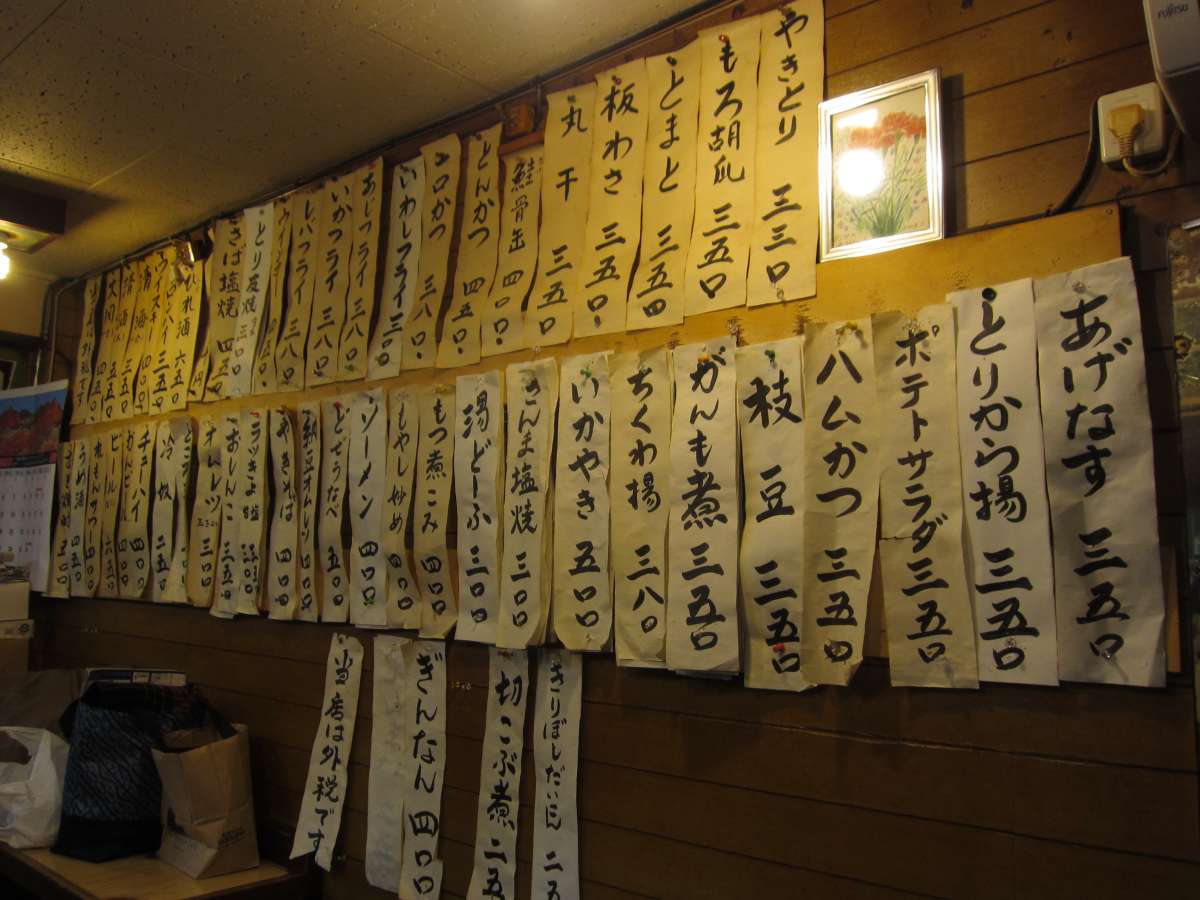 やきとり 三三〇
もろ胡瓜 三五〇
とまと 三五〇
板わさ 三五〇
丸干 三五〇
鮭骨缶 四〇〇
とんかつ 四五〇
コロかつ 三八〇
いわしフライ 三五〇
あじフライ 三八〇
いかフライ 三八〇
レバフライ 三八〇
とり皮焼 三〇〇
さば塩焼 四五〇
あげなす 三五〇
とりから揚 三五〇
ポテトサラダ 三五〇
ハムかつ 三五〇
枝豆 三五〇
がんも煮 三五〇
ちくわ揚 三八〇
いかやき 五〇〇
さんま塩焼 三〇〇
湯どーふ 三〇〇
もつ煮こみ 四〇〇
もやし妙め 四〇〇
ソーメン 四〇〇
どぜうなべ 五五〇
納豆オムレツ 四〇〇
やきそば 四〇〇
おしんこ 三五〇
オムレツ 三〇〇
冷奴 二五〇
チューハイ 四〇〇
ビール
れもんサワー 四〇〇
うめ酒
きりぼしだいこん 二五
切こぶ煮 二五
ぎんなん 四〇〇
当店は外税です
FUJITSU